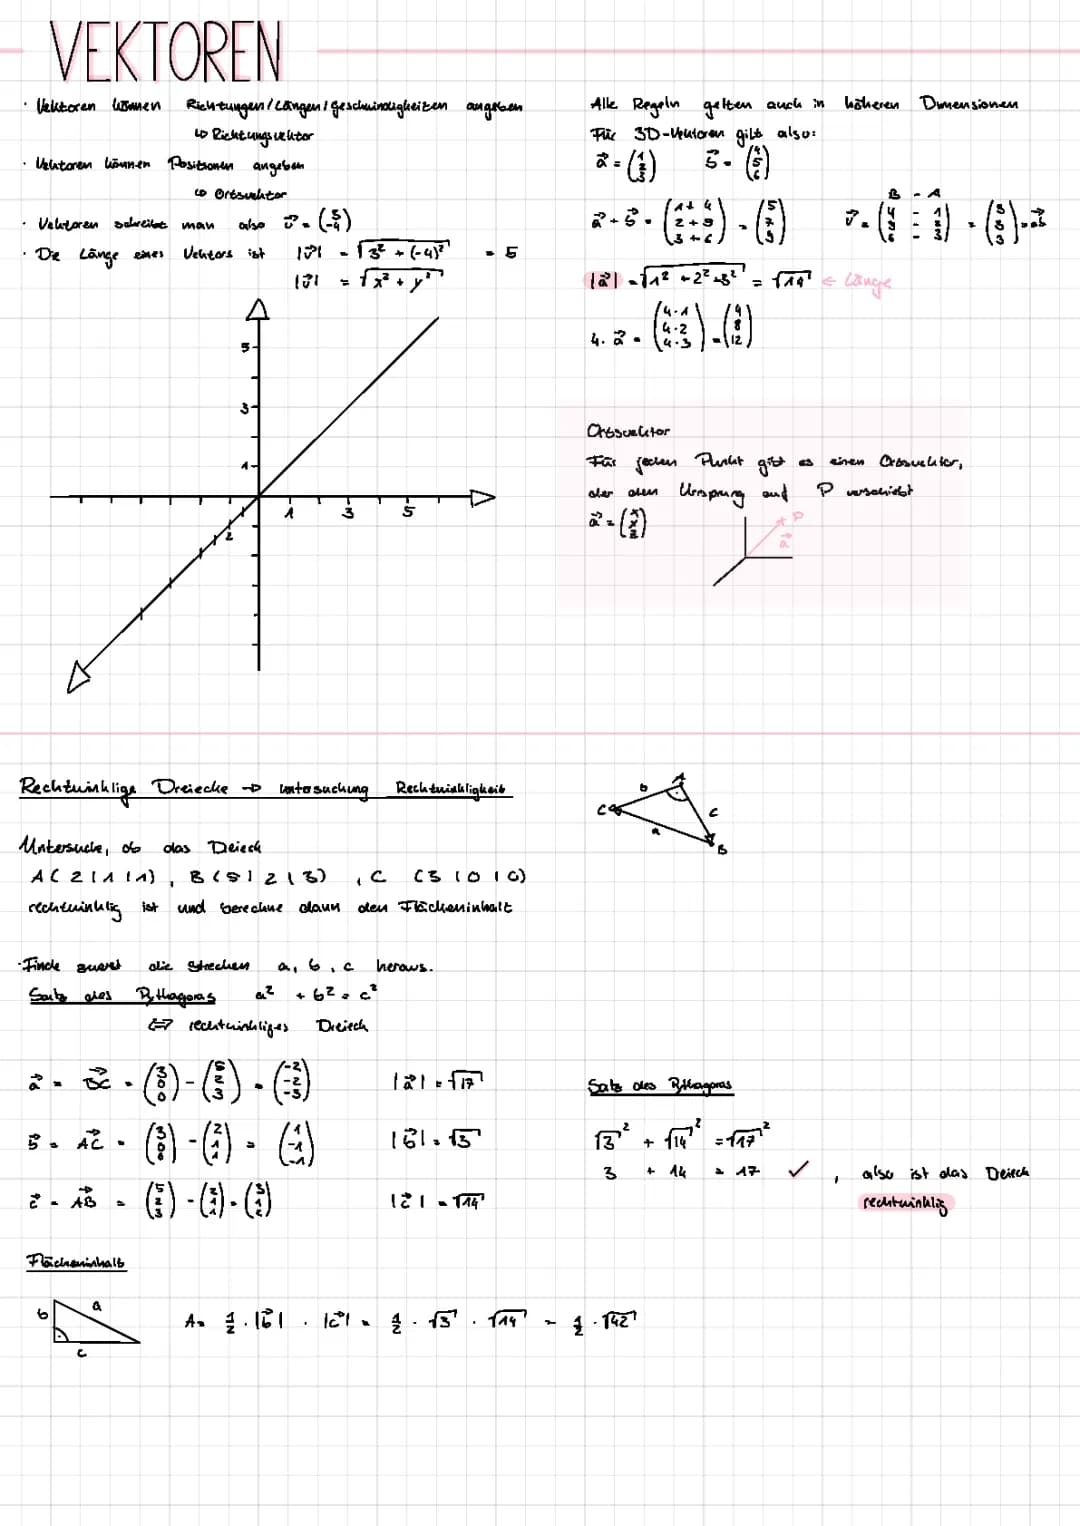 VEKTOREN
· Vektoren können Richtungen/Längen/Geschwindigkeiten angeben
↳ Richtungsvektor
· Vektoren können Positionen angeben
↳ Ortsvektor
· Vektoren schreibt man also v⃗ = (3 -4)
· Die Länge eines Vektors ist |v⃗| = √3² + (-4)² = 5
|v⃗| = √x² + y²
5
3
1
1 3 5
2
Alle Regeln gelten auch in höheren Dimensionen
Für 3D-Vektoren gilt also:
a⃗ = (1 2 3) b⃗ = (4 5 6)
B - A
a⃗ + b⃗ = (1+4 2+5 3+6) = (5 7 9) v⃗ = (4 - 1 5 - 2 6 - 3) = (3 3 3) = ab⃗
|a⃗| = √1² + 2² + 3² = √14 ← Länge
4 · a⃗ = (4·1 4·2 4·3) = (4 8 12)
Ortsvektor
Für jeden Punkt gibt es einen Ortsvektor,
der den Ursprung auf P verschiebt
a⃗ = (x x z)
P
a⃗
Rechtwinklige Dreiecke → Untersuchung Rechtwinkligkeit
A
b
C c
a
B
Untersuche, ob das Deieck
A(2|1|1), B(5|2|3), C (3|0|0)
rechtwinklig ist und berechne dann den Flächeninhalt
· Finde zuerst die strecken a, b, c heraus.
Satz des Pythagoras a² + b² = c²
⇔ rechtwinkliges Dreieck
a⃗ = BC⃗ = (3 0 0) - (5 2 3) = (-2 -2 -3) |a⃗| = √17
b⃗ = AC⃗ = (3 0 0) - (2 1 1) = (1 -1 -1) |b⃗| = √3
c⃗ = AB⃗ = (5 2 3) - (2 1 1) = (3 1 2) |c⃗| = √14
Satz des Pythagoras
√3² + √14² = √17²
3 + 14 = 17 ✓, also ist das Deieck
rechtwinklig
Flächeninhalt
b a
c
A = 1/2 · |b⃗| · |c⃗| = 1/2 · √3 · √14 = 1/2 · √42